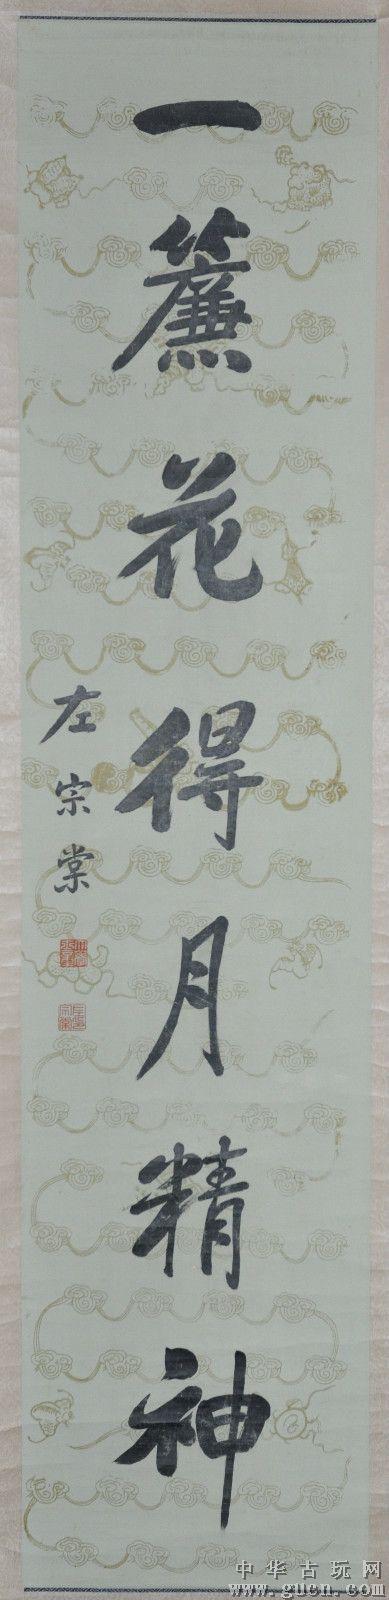 一簾花得月精神
左宗棠
中华古玩网
www.gucn.com